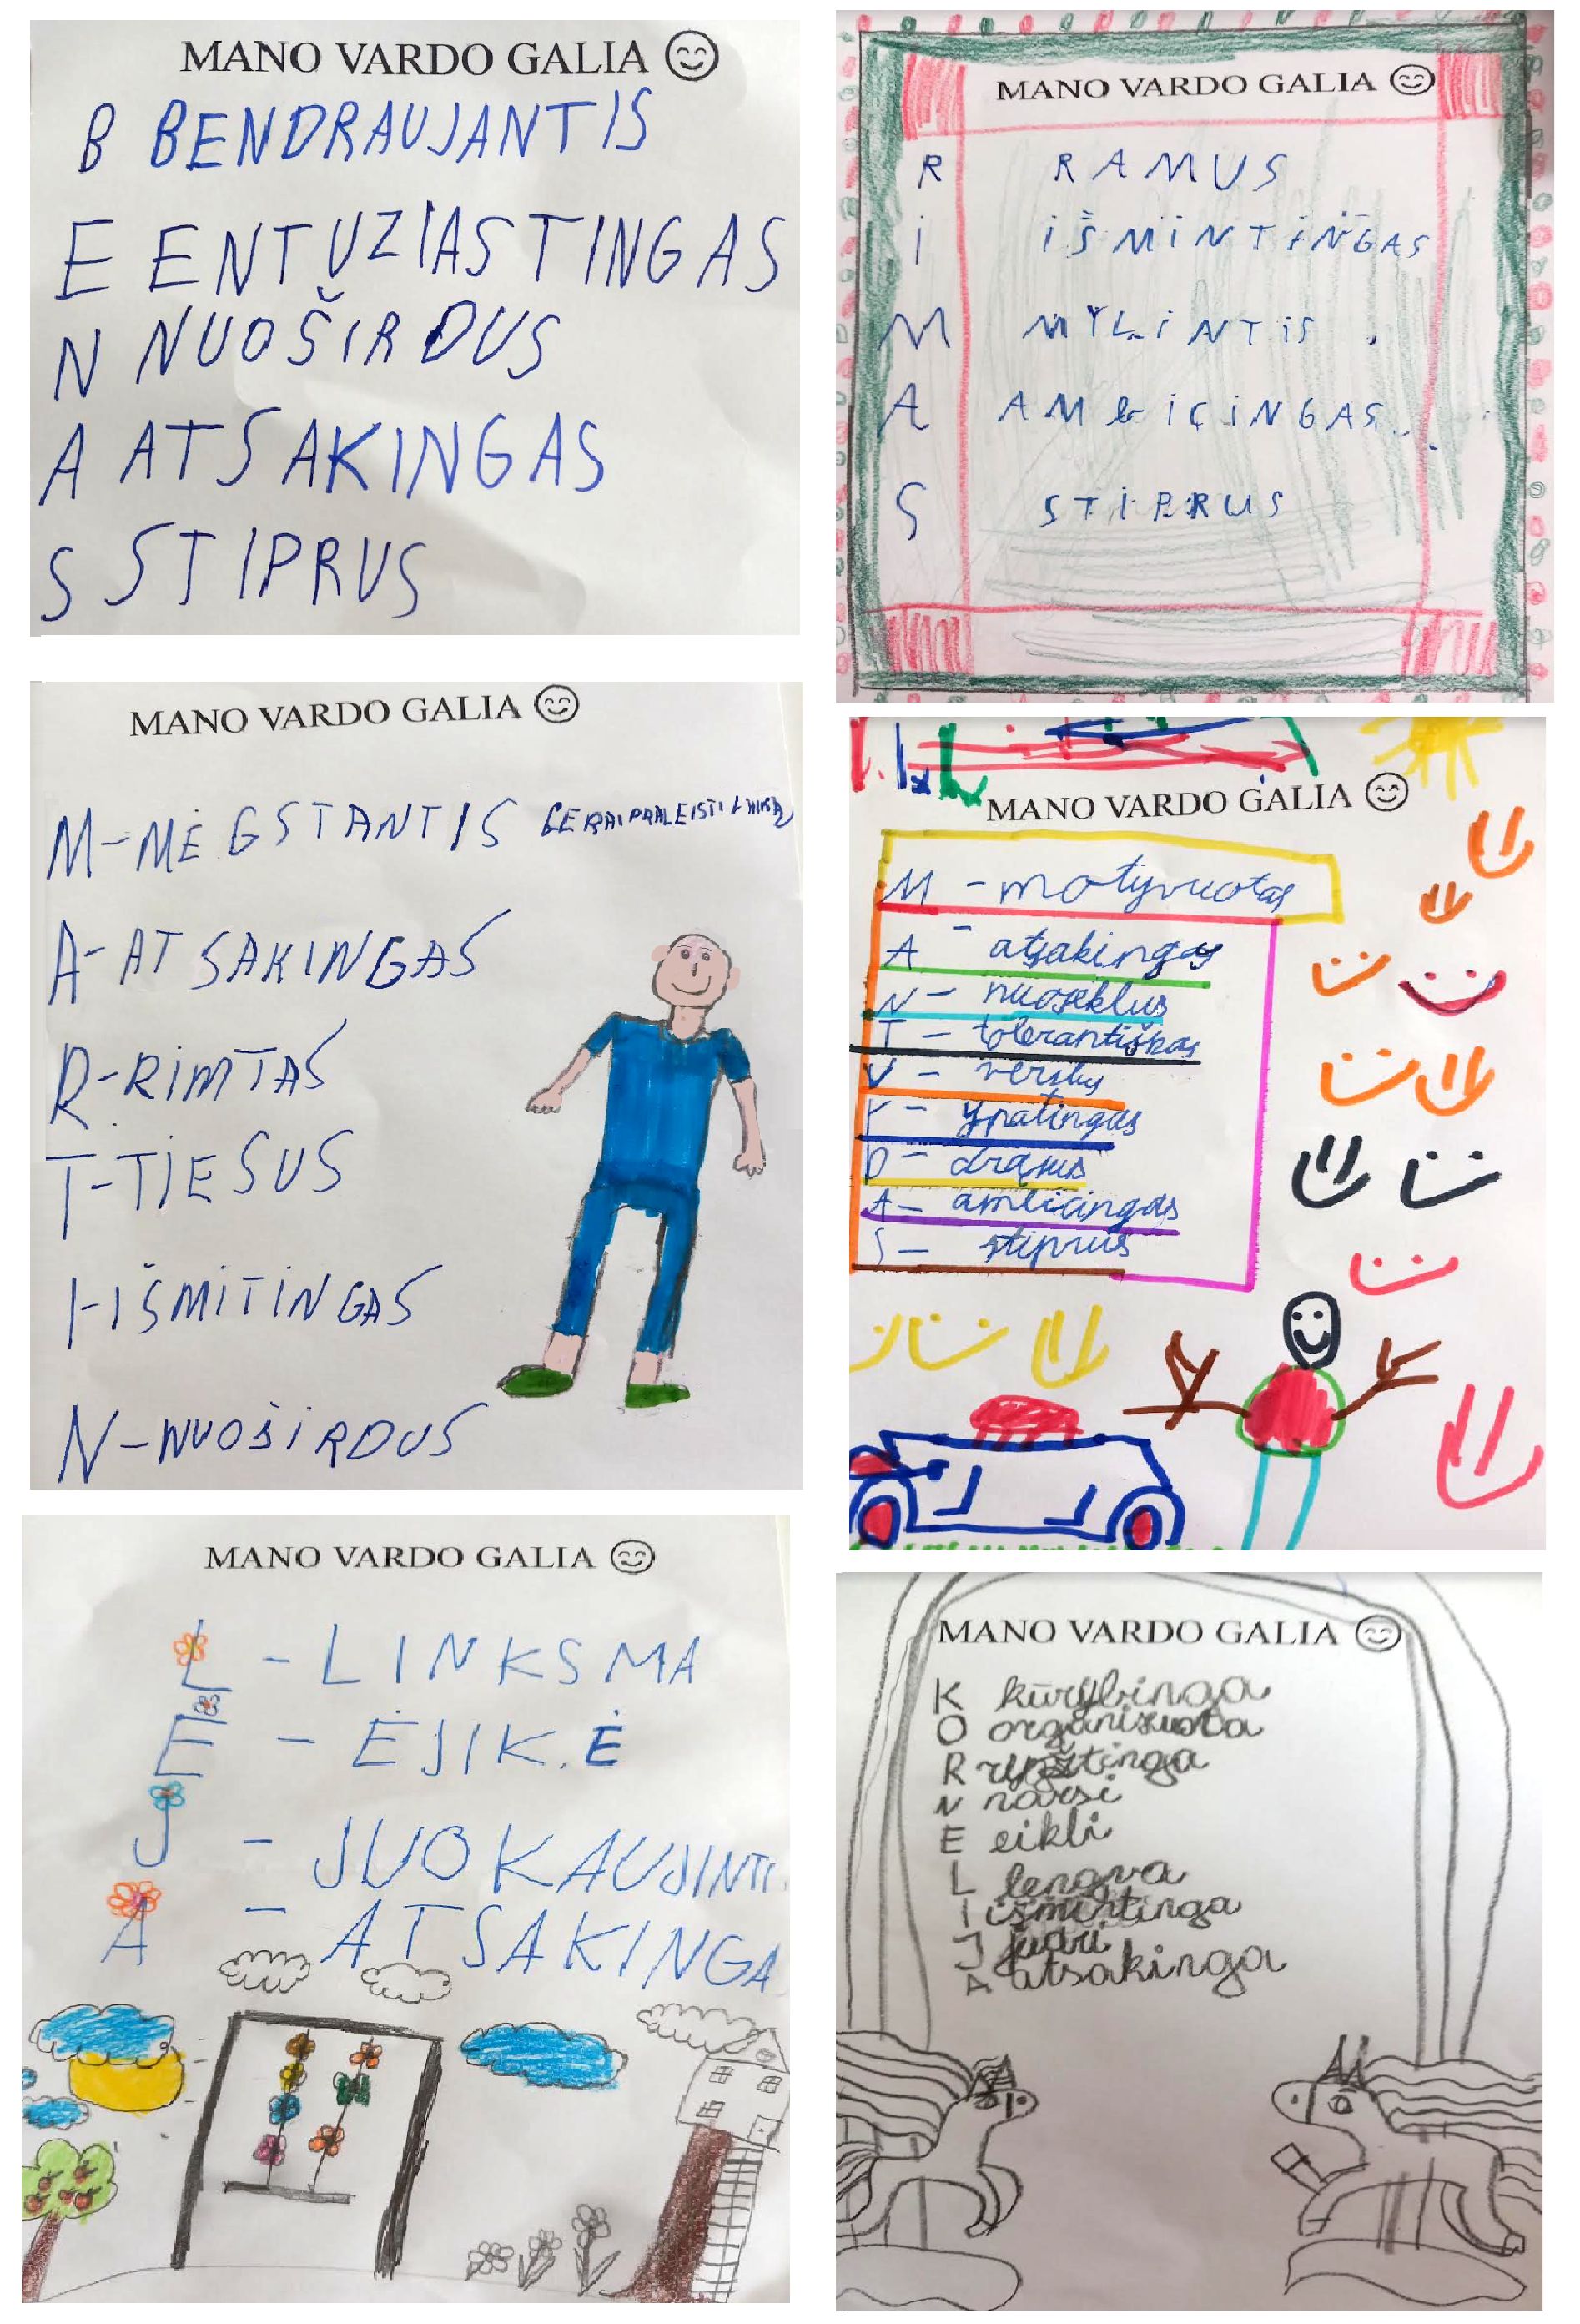 MANO VARDO GALIA
B BENDRAUJANTIS
E ENTUZIASTINGAS
N NUOŠIRDUS
A ATSAKINGAS
S STIPRUS
MANO VARDO GALIA
R RAMUS
I IŠMINTINGAS
M MYLINTIS
A AMBICINGAS
S STIPRUS
MANO VARDO GALIA
M-MĖGSTANTIS GERAI PRALEISTI LAIKĄ
A-ATSAKINGAS
R-RIMTAS
T-TIESUS
I-IŠMITINGAS
N-NUOŠIRDUS
MANO VARDO GALIA
M - motyvuotas
A - atsakingas
N - nuoseklus
T - tolerantiškas
V - verslus
Y - ypatingas
D - drąsus
A - ambicingas
S - stiprus
MANO VARDO GALIA
L - LINKSMA
Ė - ĖJIKĖ
J - JUOKAUJINTI
A - ATSAKINGA
MANO VARDO GALIA
K kūrybinga
O organizuota
R ryžtinga
N narsi
E eikli
L lengva
I išmintinga
J judri
A atsakinga